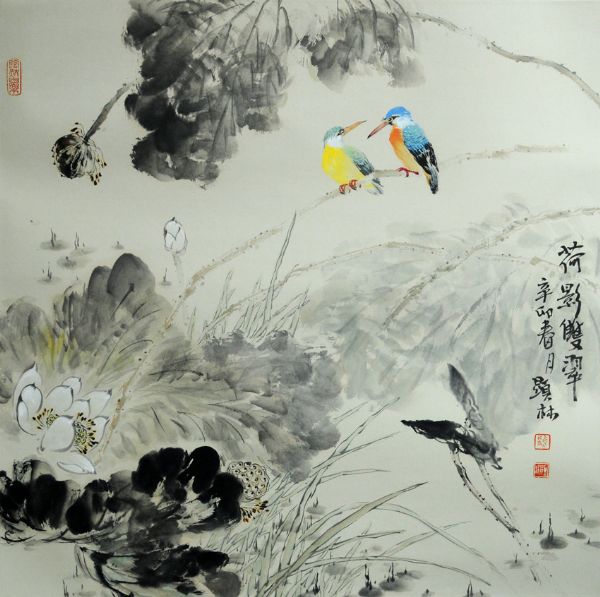 荷影雙翠
辛卯春月 顯林